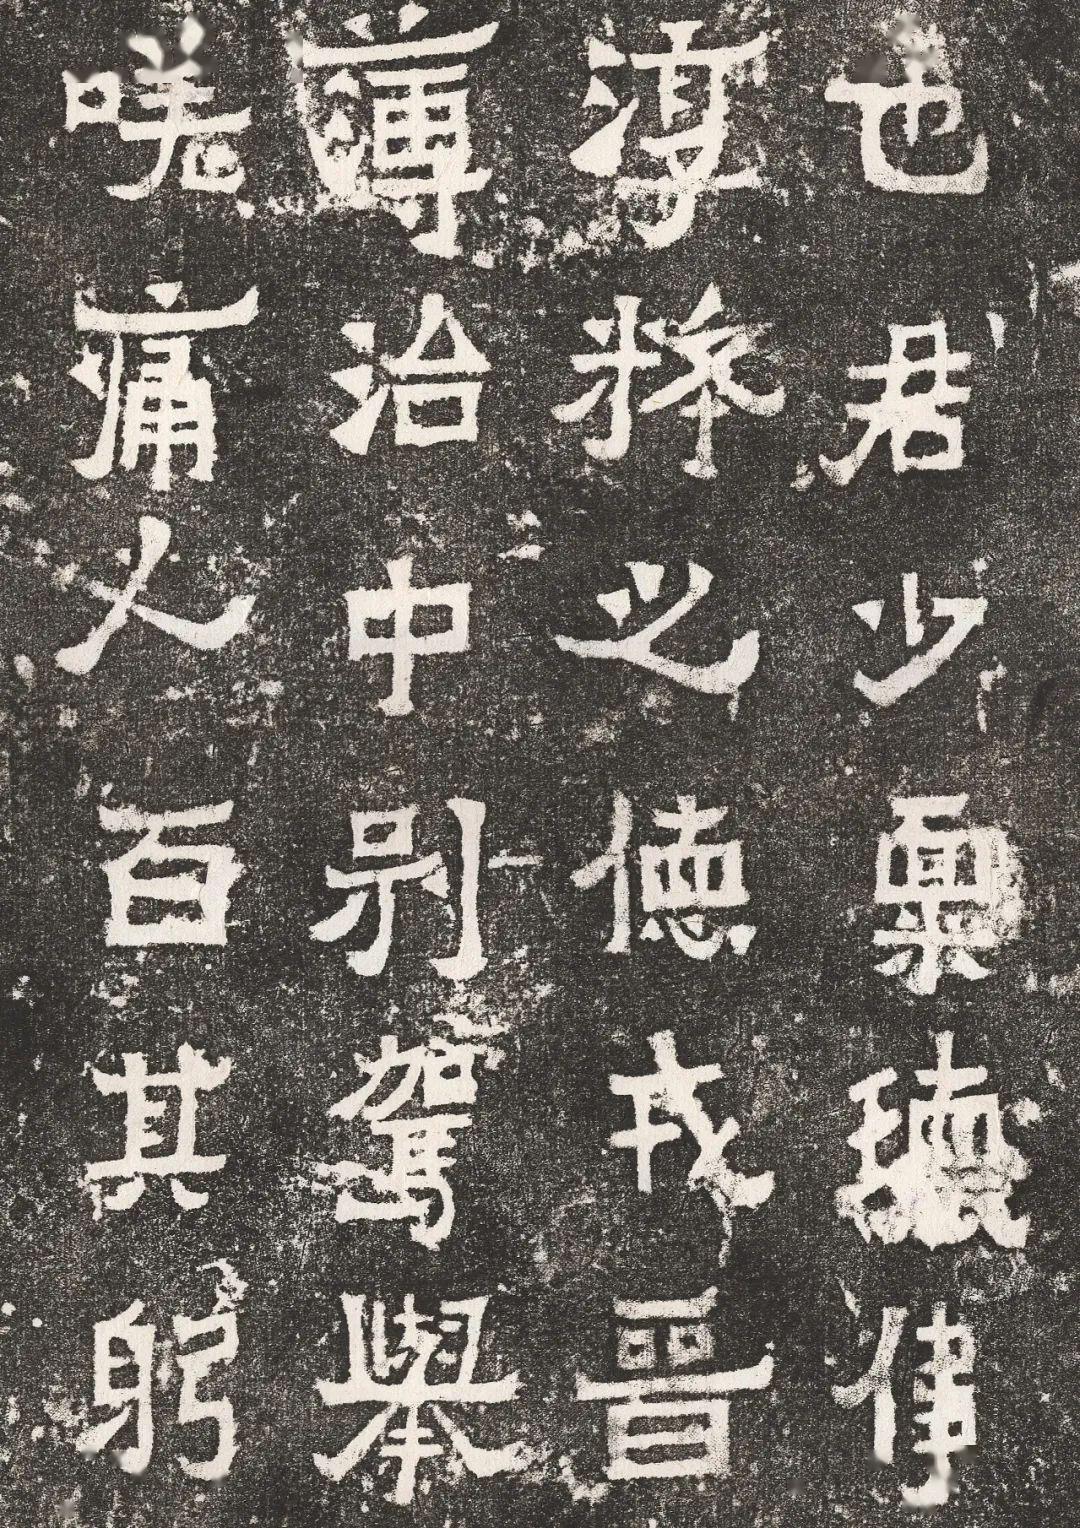 也君少稟瓌偉
淳粹之德戎晉
簿治中別駕舉
嗟痛人百其躬